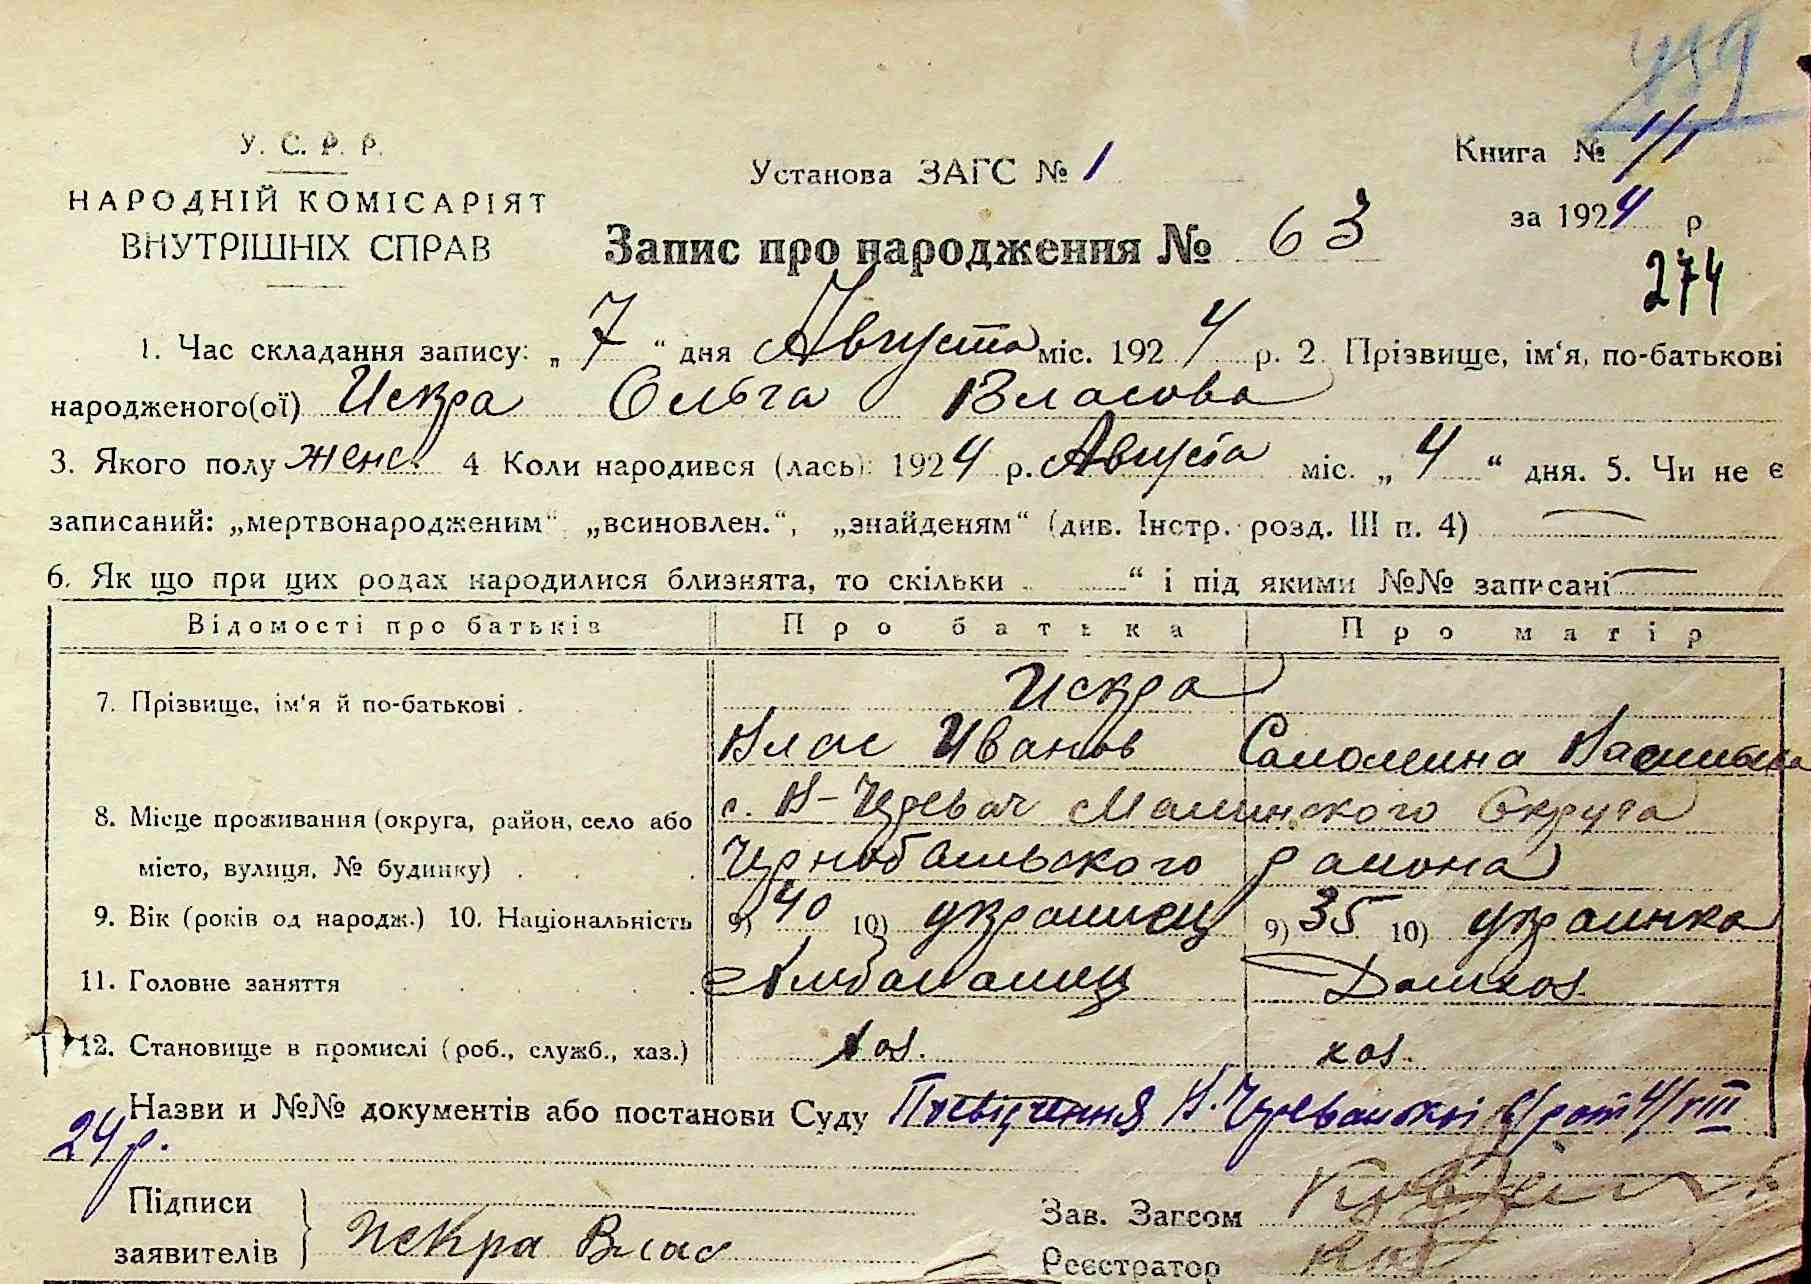 У. С. Р. Р.
НАРОДНІЙ КОМІСАРІЯТ
ВНУТРІШНІХ СПРАВ
Установа ЗАГС № 1
Книга № 1/1
за 1924 р
274
Запис про народження № 63
1. Час складання запису: „ 7 “ дня Августа міс. 1924 р. 2. Прізвище, ім‘я, по-батькові
народженого(ої) Искра Ольга Власова
3. Якого полу женс. 4 Коли народився (лась): 1924 р. Августа міс. „ 4 “ дня. 5. Чи не є
записаний: „мертвонародженим“ „всиновлен.“, „знайденям“ (див. Інстр. розд. III п. 4)
6. Як що при цих родах народилися близнята, то скільки “ і під якими №№ записані
Відомості про батьків Про батька Про матір
7. Прізвище, ім‘я й по-батькові .
Искра
Влас Иванов Соломина
8. Місце проживання (округа, район, село або
місто, вулиця, № будинку)
с. В-Чревач Малинского Округа
Чернобыльского района
9. Вік (років од народж.) 10. Національність 9) 40 10) украинец 9) 35 10) украинка
11. Головне заняття Домхоз.
12. Становище в промислі (роб., служб., хаз.) хоз. хоз.
Назви и №№ документів або постанови Суду с/р от 4/VIII
24 р.
Підписи
заявителів
Искра Влас
Зав. Загсом
Реєстратор